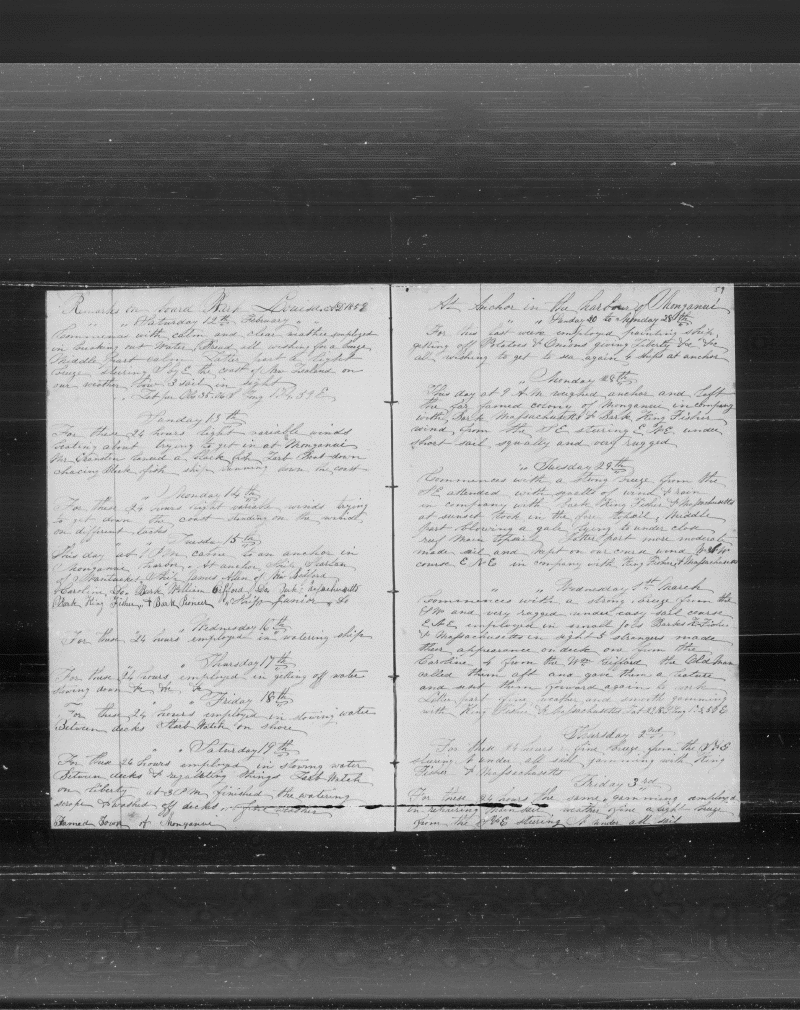 Remarks on board Bark Louisa 1853
" " Saturday 12th February " "
Commences with calm and clear weather employed
in breaking out Water & Bread all wishing for a breeze
Middle part calm Latter part a light
breeze stering S by E the coast of New Zealand on
our weather bow 3 sail in sight
" Lat for Obs 35.
Sunday 13th
For these 24 hours light variable winds
beating about trying to get in at Monganui
Mr lowed a black fish Larb Boat down
chacing Black fish ship running down the coast
" Monday 14th
For these 24 hours light variable winds trying
to get down the coast standing on the wind
on different tacks
" " Tuesday 15th
This day at 1 P.M. came to an anchor in
Monganui harbor. At anchor Ship
of Nantucket Ship James Allen of New Bedford
Caroline Do Bark William Gifford Do Bark Massachusetts
Bark King Fisher & Bark Pioneer " Ship Junior " Do
" Wednesday 16th
For these 24 hours employed in watering ship
" Thursday 17th
For these 24 hours employed in getting off water
stowing down &c &c &c
" Friday 18th
For these 24 hours employed in stowing water
Between decks Starb Watch on shore
" " Saturday 19th
For these 24 hours employed in stowing water
Between decks & regulating things Larb Watch
on liberty at 3 P.M. finished the watering
scrape & washed off decks.
Famed Town of Monganui
59
At Anchor in the harbor of Monganui
" Sunday 20 to Monday 28th
For this last week employed painting ship,
getting off Potatoes & Onions giving Liberty &c &c
all wishing to get to sea again 6 ships at anchor
" Monday 28th
This day at 9 A.M. weighed anchor and Left
the far famed colony of Monganui in company
with Bark Massachusetts & Bark King Fisher
wind from the stering under
short sail squally and very rugged
" Tuesday 29th
Commences with a strong breeze from the
attended with squalls of wind & rain
in company with Bark King Fisher & Massachusetts
at sunset Middle
part blowing a gale lying to under close
reef Main Topsail Latter part more moderate
made sail and kept on our course wind
course E.N.E in company with King Fisher & Massachusetts
" Wednesday 1st March
Commences with a strong breeze from the
and very rugged under easy sail course
employed in small jobs Barks K. Fisher
& Massachusetts in sight 2 strangers made
their appearance on deck one from the
Caroline & from the Wm Gifford the Old Man
called them aft and gave them a lecture
and sent them forward again to work
Latter part fine weather and smooth gamming
with King Fisher & Massachusetts
Thursday 2nd
For these 24 hours a fine breeze from the
stering under all sail gamming with King
Fisher & Massachusetts
Friday 3rd
For these 24 hours the same gamming employed
in repairing weather fine a light breeze
from the stering under all sail